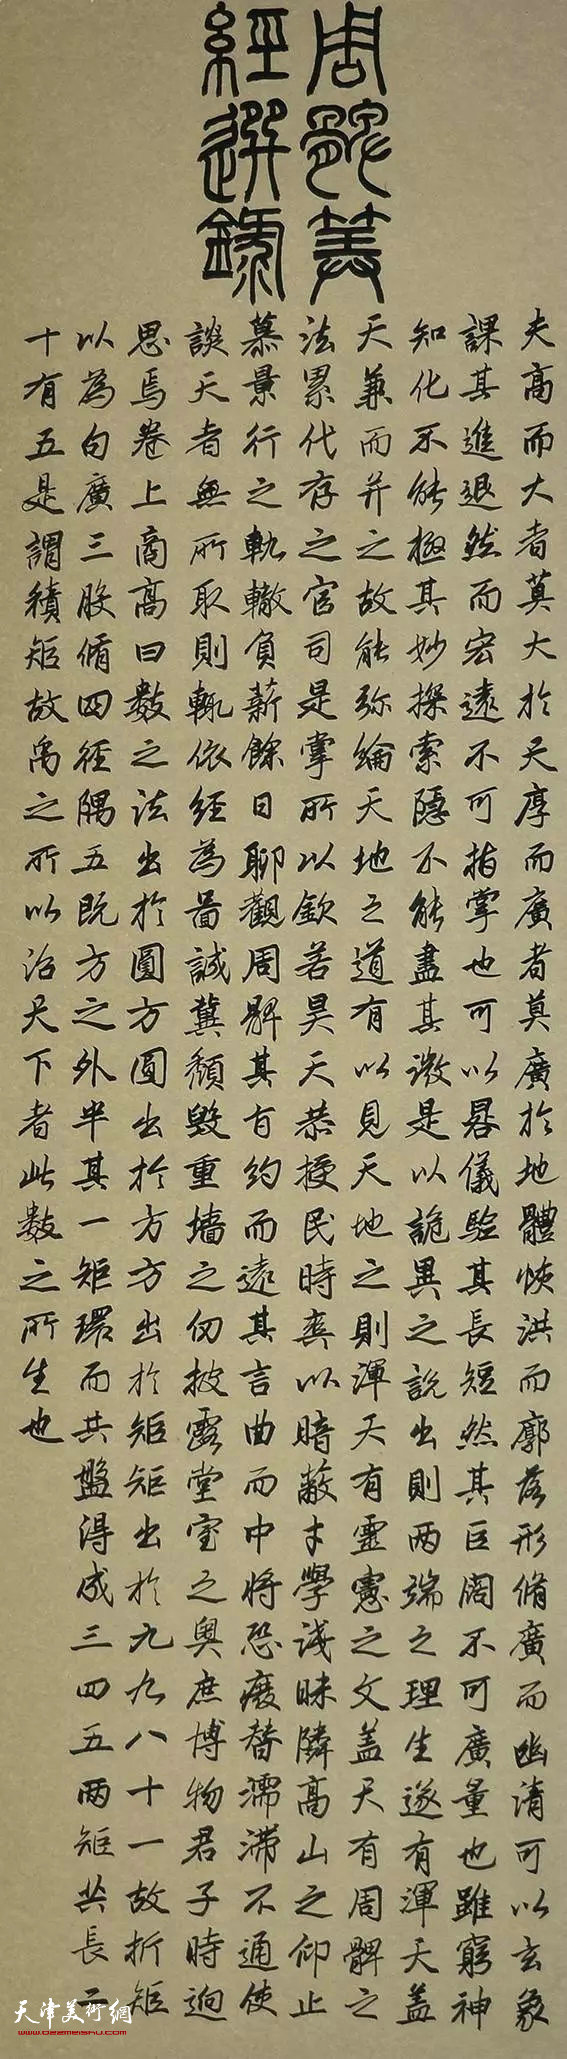 周髀筭
經選錄
夫高而大者莫大於天厚而廣者莫廣於地體恢洪而廓落形脩廣而幽清可以玄象
課其進退然而宏遠不可指掌也可以晷儀驗其長短然其巨闊不可廣量也雖窮神
知化不能極其妙探索隱不能盡其微是以詭異之說出則两端之理生遂有渾天蓋
天兼而并之故能弥綸天地之道有以見天地之則渾天有靈憲之文盖天有周髀之
法累代存之官司是掌所以欽若昊天恭授民時爽以暗蔽才學淺昧隣高山之仰止
慕景行之軌轍負薪餘日聊觀周髀其旨約而遠其言曲而中将恐廢替濡滯不通使
談天者無所取則輒依經為圖誠冀頹毀重墻之仞披露堂室之奧庶博物君子時迥
思焉卷上商高曰數之法出於圓方圓出於方方出於矩矩出於九九八十一故折矩
以為句廣三股脩四徑隅五既方之外半其一矩環而共盤得成三四五两矩共長二
十有五是謂積矩故禹之所以治天下者此數之所生也
天津美術網
www.022meishu.com